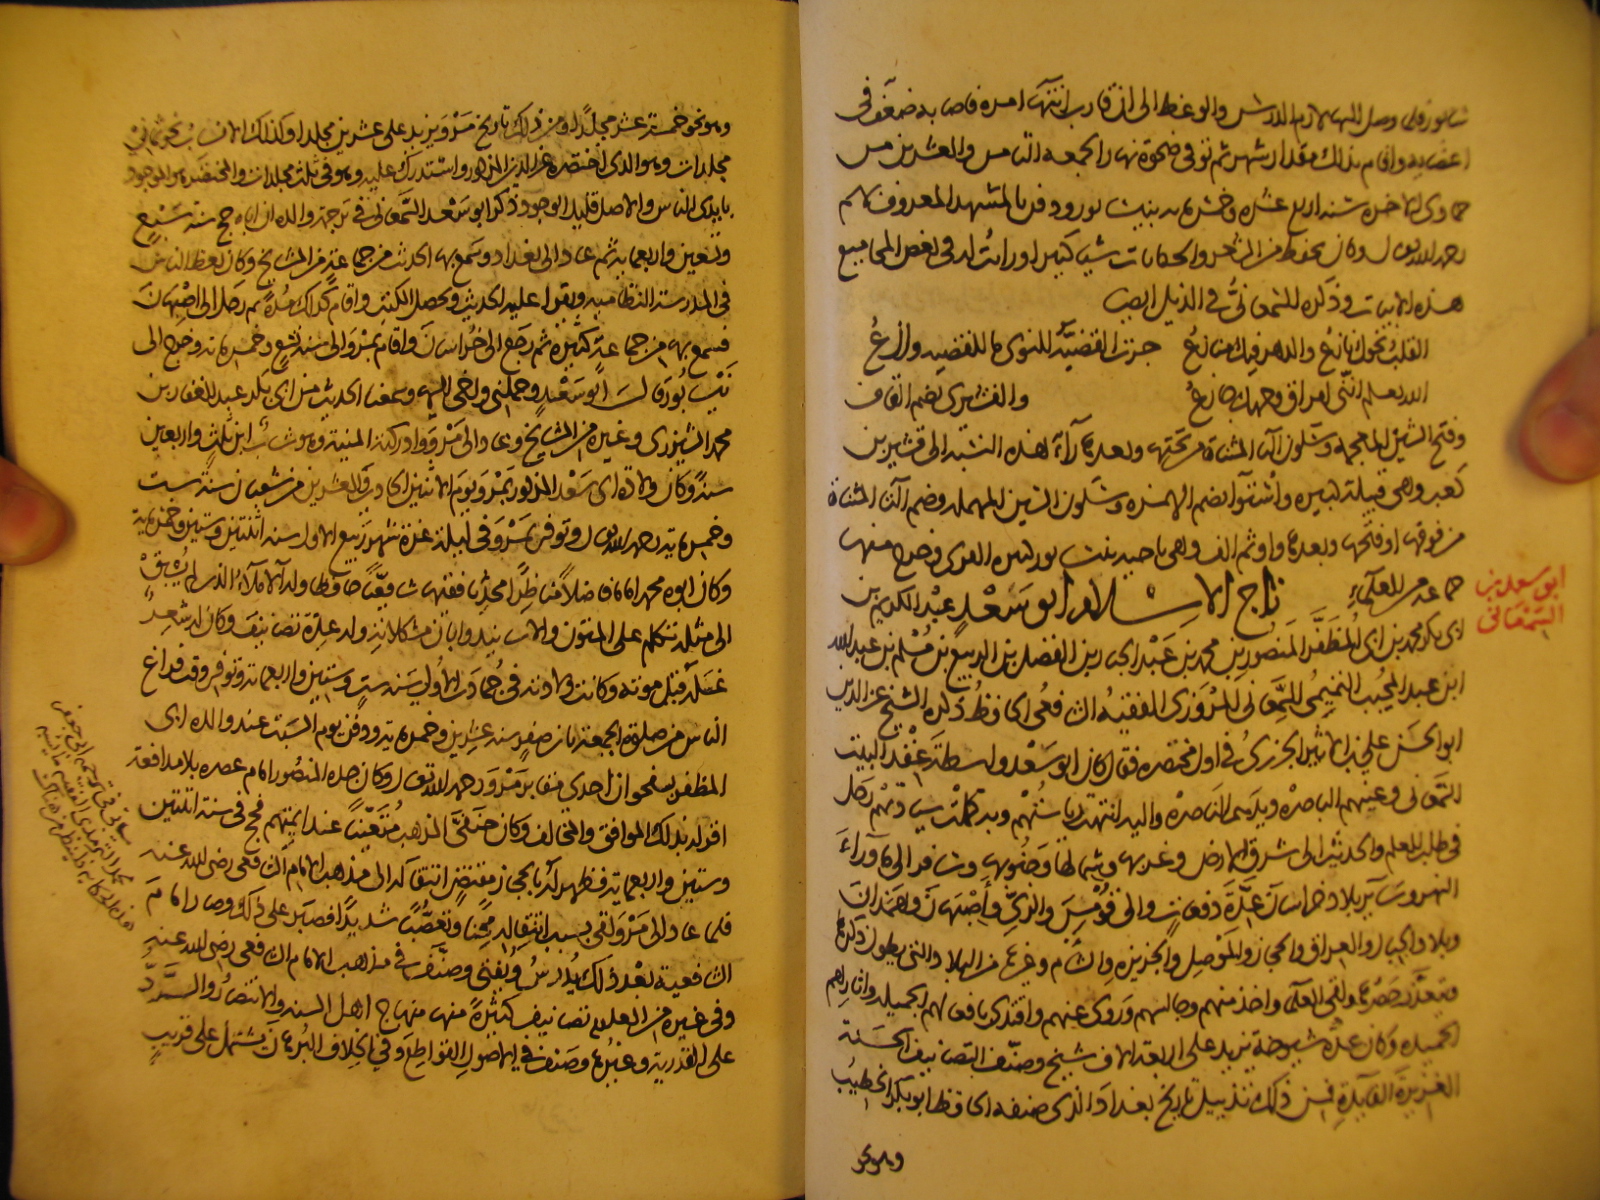 نيسابور فلما وصل اليها لازم الدرس والوعظ الى ان قارب انتهاء امره فاصابه ضعف في
اعضائه واقام بذلك مقدار شهر ثم توفي ضحوة نهار الجمعة الثامن والعشرين من
جمادى الاخرة سنة اربع عشرة وخمس مائة بنيسابور ودفن بالمشهد المعروف بهم
رحمه الله تعالى وكان يحفظ من الشعر والحكايات شيئا كثيرا ورأيت له في بعض المجاميع
هذه الابيات وذكره السمعاني في الذيل ايضا
القلب نحوك نازع والدهر فيك منازع جرت القضية بالنوى ما للقضية وازع
الله يعلم انني لفراق وجهك جازع والقشيري بضم القاف
وفتح الشين المعجمة وسكون الياء المثناة من تحتها وبعدها راء هذه النسبة الى قشير بن
كعب وهي قبيلة كبيرة واستوا بضم الهمزة وسكون السين المهملة وضم التاء المثناة
من فوقها او فتحها وبعدها واو ثم الف وهي ناحية بنيسابور كثيرة القرى وخرج منها
جماعة من العلماء تاج الاسلام ابو سعد عبد الكريم بن
ابو سعد بن السمعاني
ابي بكر محمد بن ابي المظفر المنصور بن محمد بن عبد الجبار بن الفضل بن الربيع بن مسلم بن عبد الله
ابن عبد المجيب التميمي السمعاني المروزي الفقيه الشافعي الحافظ ذكره الشيخ عز الدين
ابو الحسن علي بن الاثير الجزري في اول مختصره فقال كان ابو سعد واسطة عقد البيت
السمعاني وعينهم الباصرة ويدهم الناصرة واليه انتهت رياستهم وبه كملت سيادتهم رحل
في طلب العلم والحديث الى شرق الارض وغربها وشمالها وجنوبها وسافر الى ما وراء
النهر وسائر بلاد خراسان عدة دفعات والى قومس والري واصبهان وهمذان
وبلاد الجبال والعراق والحجاز والموصل والجزيرة والشام وغيرها من البلاد التي يطول ذكرها
ويتعذر حصرها ولقي العلماء واخذ منهم وجالسهم وروى عنهم واقتدى بافعالهم الجميلة واثارهم
الحميدة وكان عدة شيوخه تزيد على اربعة الاف شيخ وصنف التصانيف الحسنة
الغزيرة الفايدة فمن ذلك تذييل تاريخ بغداد الذي صنفه الحافظ ابو بكر الخطيب
وهو نحو
وهو نحو خمسة عشر مجلدا ومن ذلك تاريخ مرو يزيد على عشرين مجلدا وكذلك الانساب نحو ثماني
مجلدات وهو الذي اختصره عز الدين المذكور واستدرك عليه وهو في ثلاث مجلدات والمختصر هو الموجود
بايدي الناس والاصل قليل الوجود وذكر ابو سعد السمعاني في ترجمة والده ان اباه حج سنة سبع
وتسعين واربعمائة ثم عاد الى بغداد وسمع بها الحديث من جماعة من المشايخ وكان يعظ الناس
في المدرسة النظامية ويقرا عليه الحديث ويحصل الكتب واقام كذلك مدة ثم رحل الى اصبهان
فسمع بها من جماعة كثيرة ثم رجع الى خراسان واقام بمرو الى سنة تسع وخمسمائة وخرج الى
نيسابور قال ابو سعد وحملني واخي اليها وسمعنا الحديث من ابي بكر عبد الغفار بن
محمد الشيروي وغيره من المشايخ وعاد الى مرو وادركته المنية وهو شاب ابن ثلاث واربعين
سنة وكان ولادة ابي سعد المذكور بمرو يوم الاثنين الحادي والعشرين من شعبان سنة ست
وخمسمائة رحمه الله تعالى وتوفي بمرو في ليلة غرة شهر ربيع الاول سنة اثنتين وستين وخمسمائة
وكان ابوه محمد اماما فاضلا مناظرا محدثا فقيها شافعيا حافظا وله الاملاء الذي لم يسبق
الى مثله تكلم على المتون والاسانيد وابان مشكلاتها وله عدة تصانيف وكان له شعر
غسله قبل موته وكانت ولادته في جمادى الاولى سنة ست وستين واربعمائة وتوفي وقت فراغ
الناس من صلوة الجمعة ثاني صفر سنة عشر وخمسمائة ودفن يوم السبت عند والده ابي
المظفر بسفحوان احدى مقابر مرو رحمه الله تعالى وكان جده المنصور امام عصره بلا مدافعة
اقر له بذلك الموافق والمخالف وكان حنفي المذهب متعينا عند ايمتهم فحج في سنة اثنتين
وستين واربعمائة فظهر له بالحجاز مقتضى انتقاله الى مذهب الامام الشافعي رضي الله عنه
فلما عاد الى مرو لقي بسبب انتقاله محنا وتعصبا شديدا فصبر على ذلك وصار امام
الشافعية بعد ذلك يدرس ويفتي وصنف في مذهب الامام الشافعي رضي الله عنه
وفي غيره من العلوم تصانيف كثيرة منها منهاج اهل السنة والانتصار والرد
على القدرية وغيرها وصنف في الاصول القواطع وفي الخلاف البرهان يشتمل على قريب